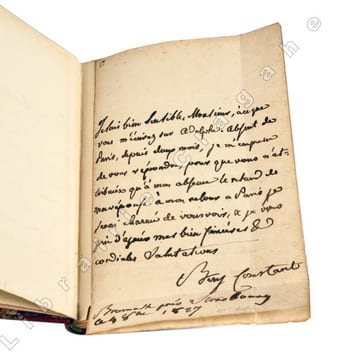 Je suis bien sensible, Monsieur, à ce que
vous m'écrivez sur Adolphe. absent de
Paris, depuis deux mois, je m'empresse
de vous répondre, pour que vous n'att-
tribuiez qu'à mon absence le retard de
ma réponse. à mon retour à Paris je
serai charmé de vous voir, & je vous
pri d'agréer mes bien sincères &
cordiales Salutations
Benj Constant
Brumath près Strasbourg
ce 8 8bre 1827
Librairie Signature